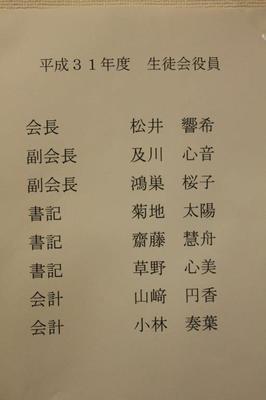 平成３１年度　生徒会役員
会長　松井　響希
副会長　及川　心音
副会長　鴻巣　桜子
書記　菊地　太陽
書記　齋藤　慧舟
書記　草野　心美
会計　山﨑　円香
会計　小林　奏葉